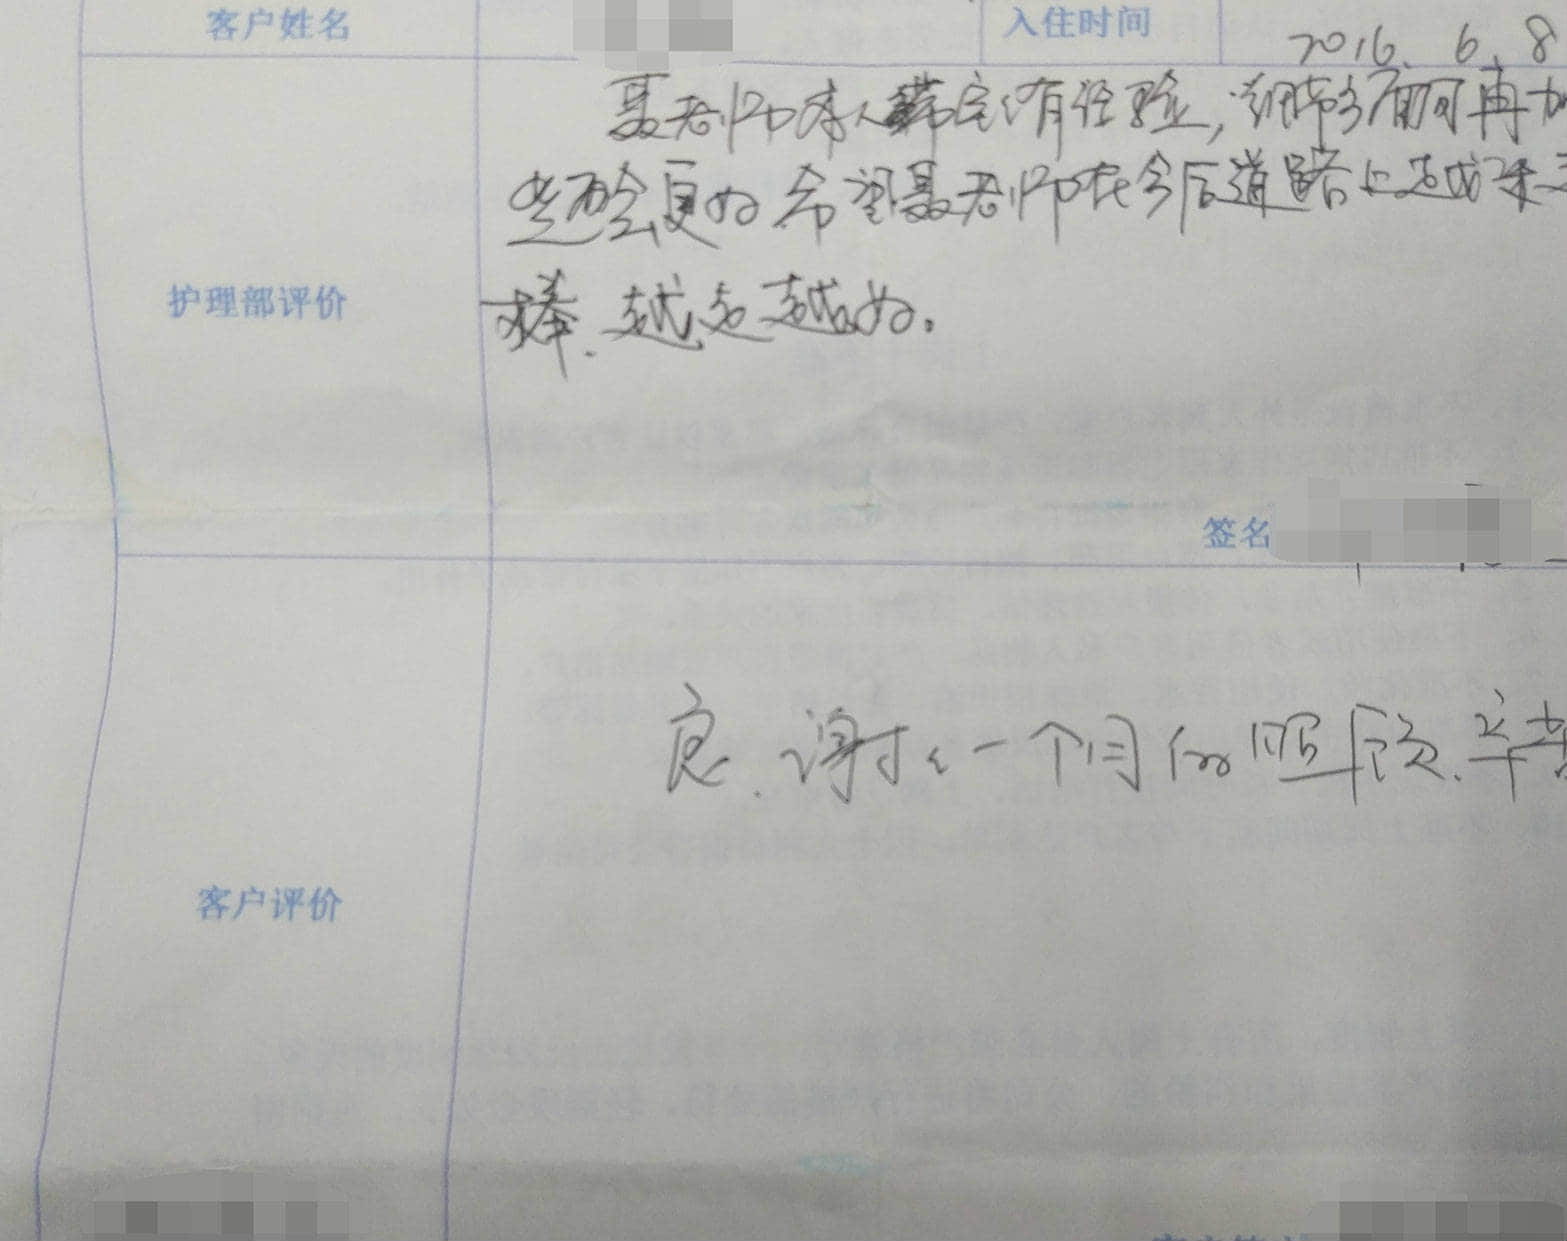 客户姓名 入住时间 2016.6.8
聂老师本人带宝宝有经验,细节方面可再加
些面会更好 希望聂老师在今后道路上越来
棒.越走越好。
护理部评价
签名
良.谢谢一个月的照顾.辛苦
客户评价